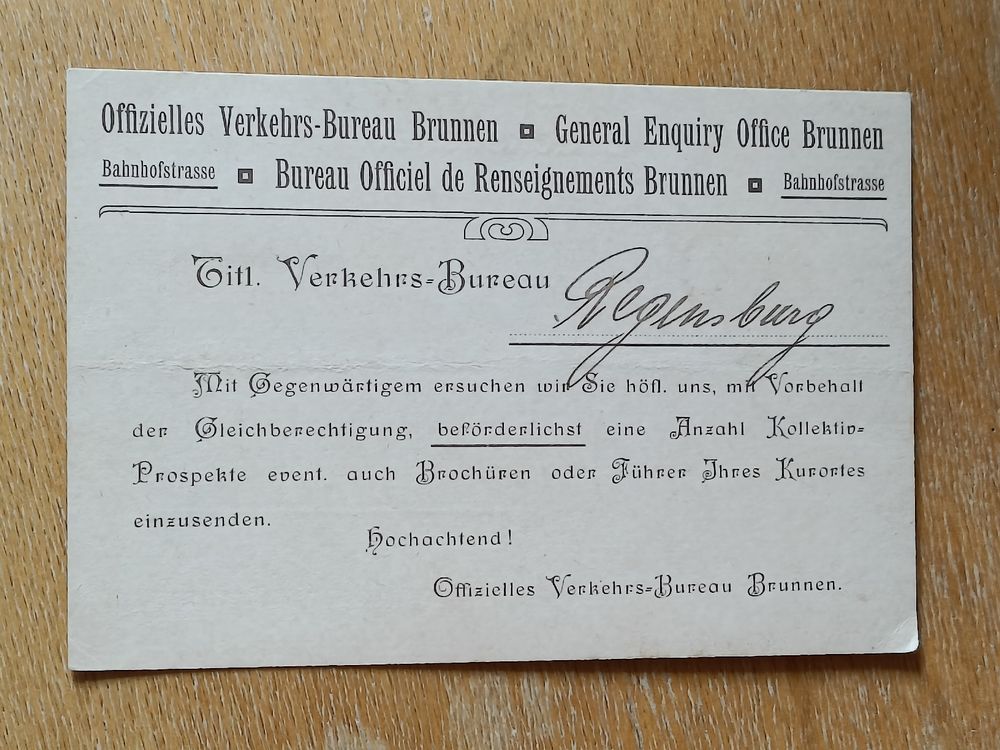 Offizielles Verkehrs-Bureau Brunnen ▪ General Enquiry Office Brunnen
Bahnhofstrasse ▪ Bureau Officiel de Renseignements Brunnen ▪ Bahnhofstrasse
Titl. Verkehrs-Bureau Regensburg
Mit Gegenwärtigem ersuchen wir Sie höfl. uns, mit Vorbehalt
der Gleichberechtigung, beförderlichst eine Anzahl Kollektiv-
Prospekte event. auch Brochüren oder Führer Ihres Kurortes
einzusenden.
Hochachtend!
Offizielles Verkehrs-Bureau Brunnen.